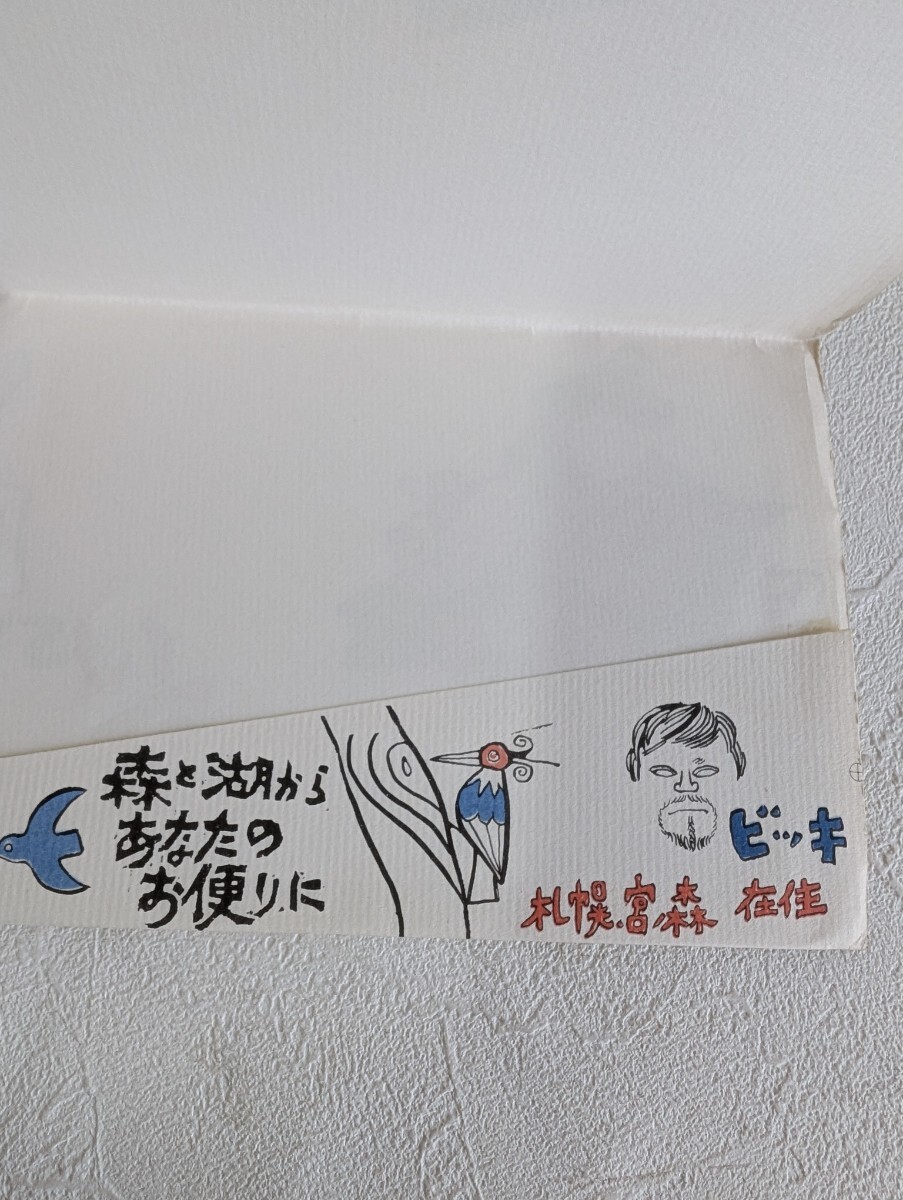 森と湖から
あなたの
お便りに
ビッキ
札幌、宮ノ森 在住